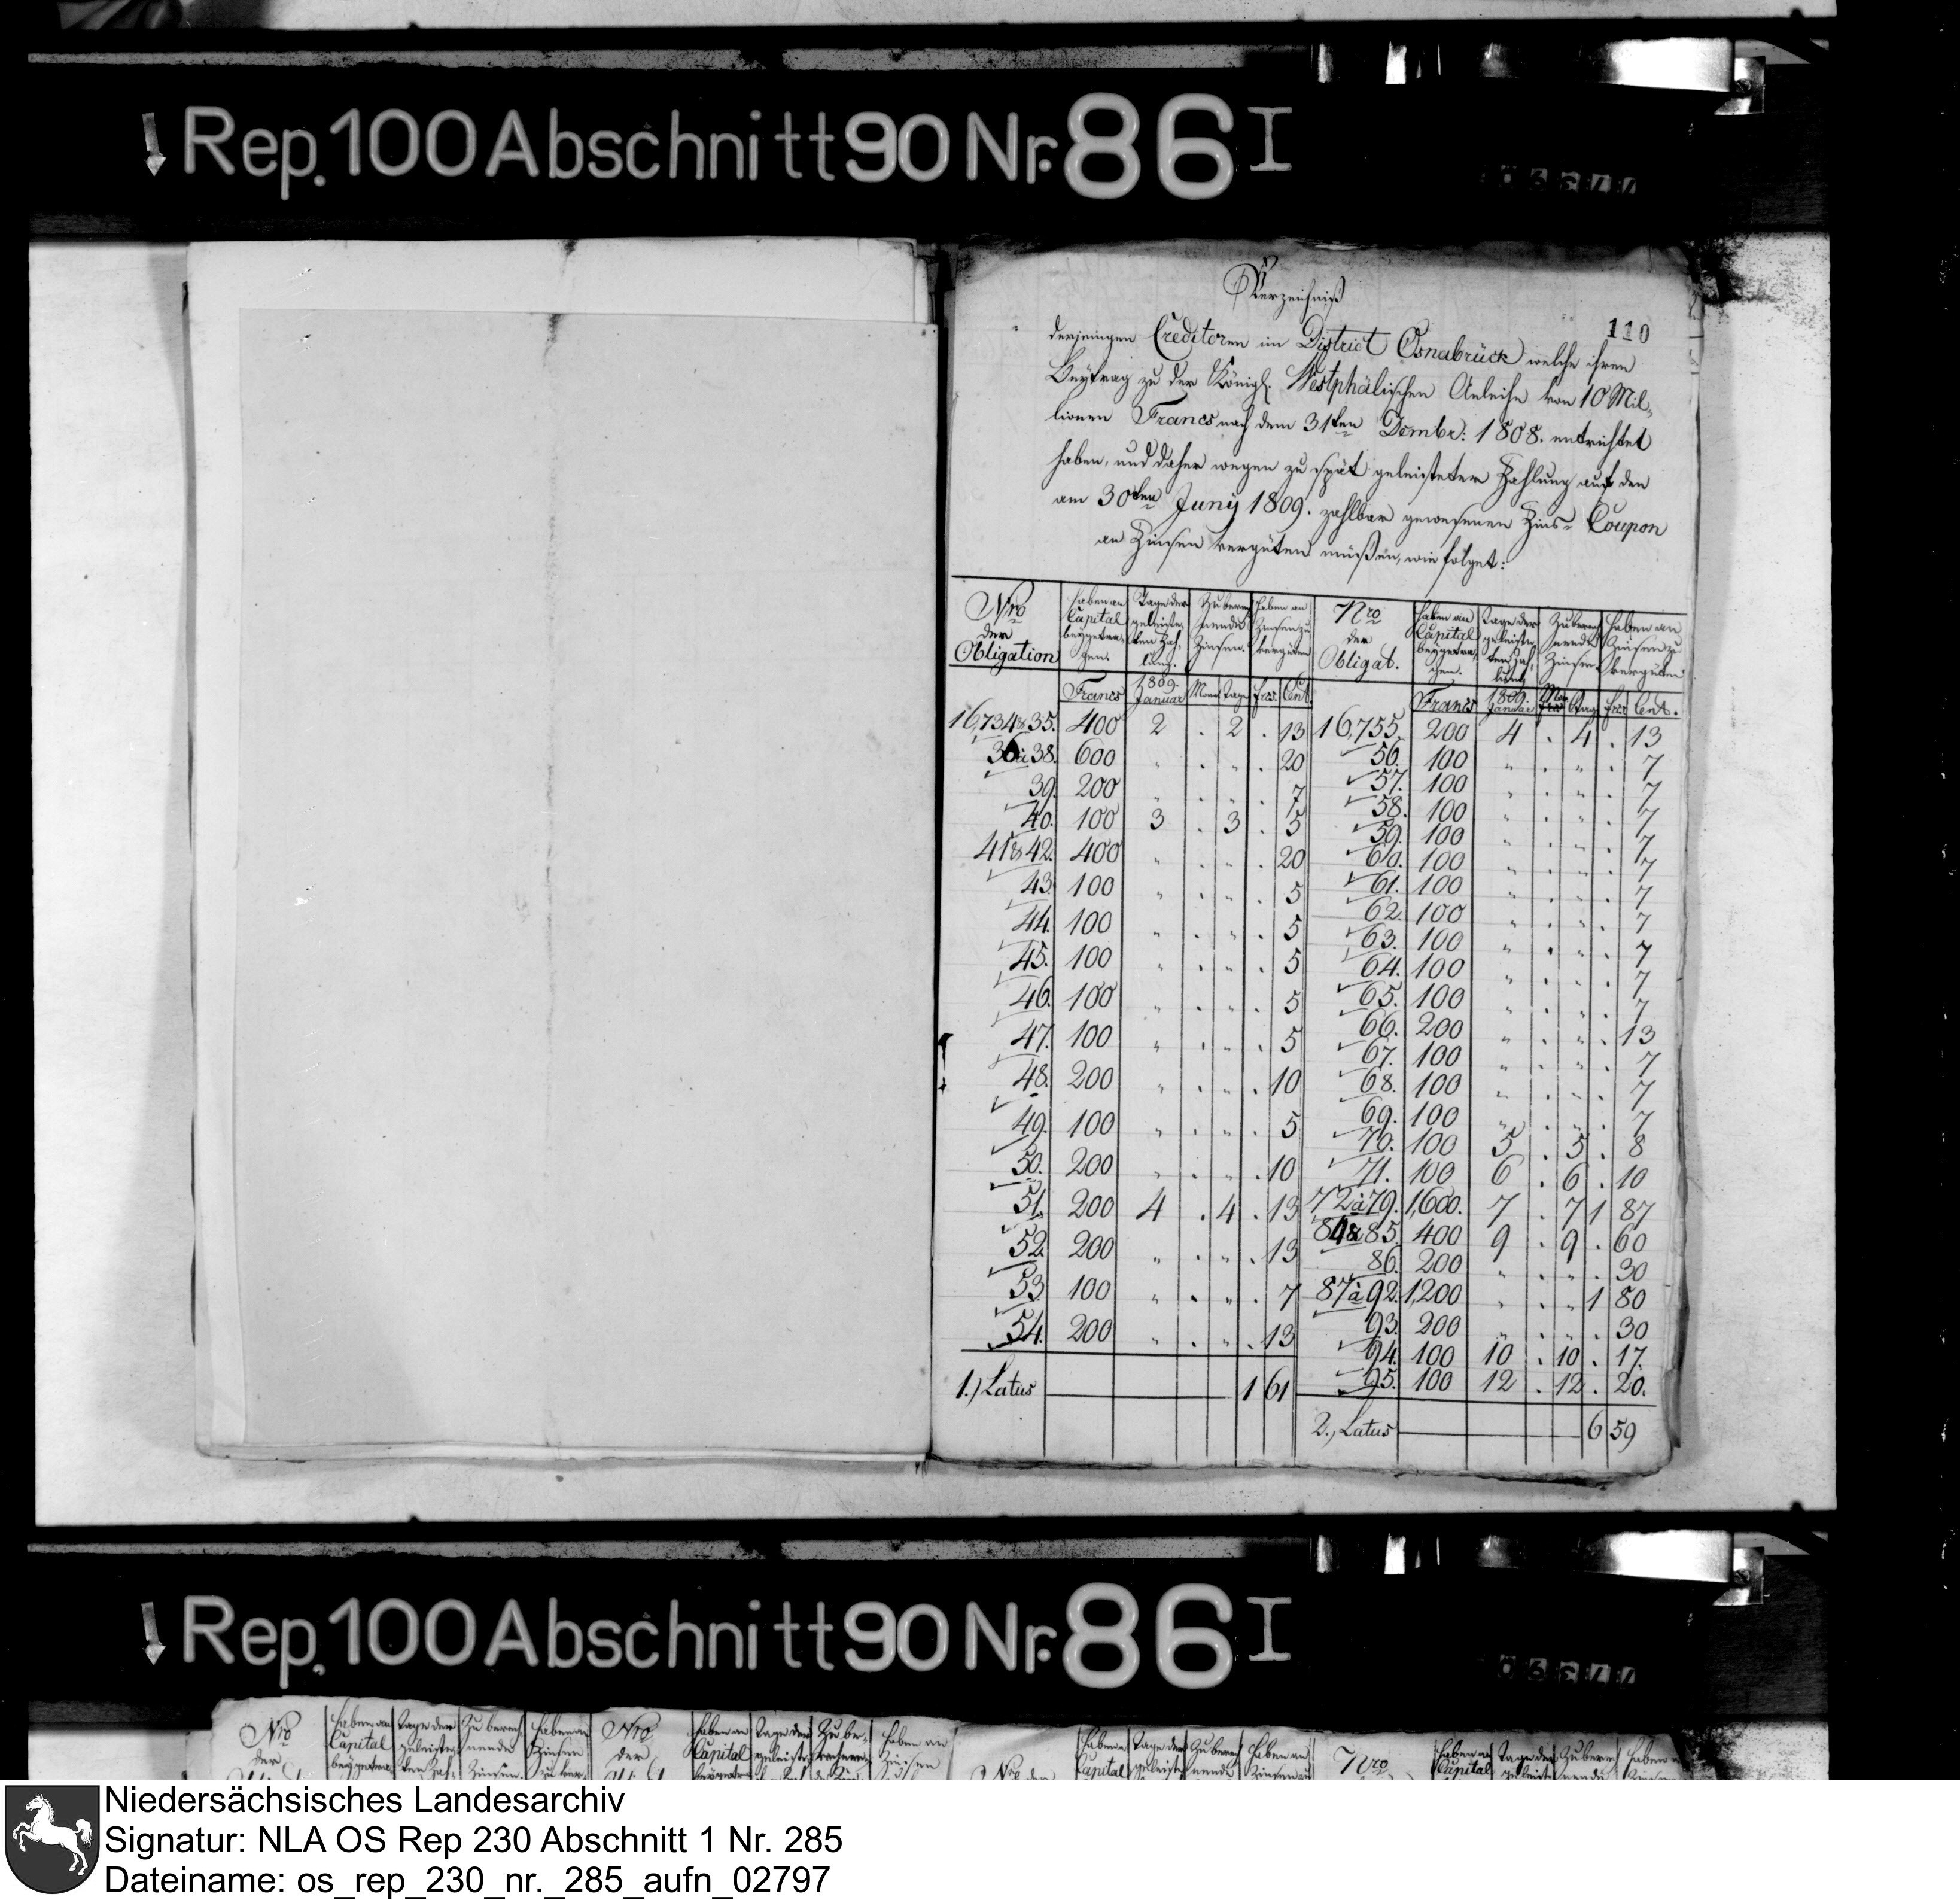 Rep. 100 Abschnitt 90 Nr. 86 I
Verzeichniß
110
derjenigen Creditoren im District Osnabrück welche ihren
Beytrag zu der Königl. Westphälischen Anleihe von 10 Mil-
lionen Francs nach dem 31ten Dcmbr: 1808. entrichtet
haben, und daher wegen zu spät geleisteter Zahlung auf den
am 30ten Juny 1809. zahlbar gewesenen Zins-Coupon
an Zinsen vergüten müßen, wie folget:
Nro der Obligation | haben an Capital beygetragen. | Tage der geleisteten Zahlung. | Zu berechnende Zinsen. | haben an Zinsen zu vergüten | Nro der Obligat. | haben an Capital beygetragen. | Tage der geleisteten Zahlung | Zu berechnende Zinsen. | haben an Zinsen zu vergüten
Francs | 1809. Januar | Mon. | Tage | frcs | Cent. | Francs | 1809. Januar | Mon | Tag | frcs | Cent.
16,734 & 35. 400 2 . 2 . 13 | 16,755. 200 4 . 4 . 13
36 à 38. 600 " . " . 20 | 56. 100 " . " . 7
39. 200 " . " . 7 | 57. 100 " . " . 7
40. 100 3 . 3 . 5 | 58. 100 " . " . 7
41 & 42. 400 " . " . 20 | 59. 100 " . " . 7
43. 100 " . " . 5 | 60. 100 " . " . 7
44. 100 " . " . 5 | 61. 100 " . " . 7
45. 100 " . " . 5 | 62. 100 " . " . 7
46. 100 " . " . 5 | 63. 100 " . " . 7
47. 100 " . " . 5 | 64. 100 " . " . 7
48. 200 " . " . 10 | 65. 100 " . " . 7
49. 100 " . " . 5 | 66. 200 " . " . 13
50. 200 " . " . 10 | 67. 100 " . " . 7
51. 200 4 . 4 . 13 | 68. 100 " . " . 7
52. 200 " . " . 13 | 69. 100 " . " . 7
53. 100 " . " . 7 | 70. 100 5 . 5 . 8
54. 200 " . " . 13 | 71. 100 6 . 6 . 10
72 à 79. 1,600. 7 . 7 1 87
84 & 85. 400 9 . 9 . 60
86. 200 " . " . 30
87 à 92. 1,200 " . " 1 80
93. 200 " . " . 30
94. 100 10 . 10 . 17.
95. 100 12 . 12 . 20.
1.) Latus 1 61
2.) Latus 6 59
Rep. 100 Abschnitt 90 Nr. 86 I
Nro der | haben an Capital | Tage der | Zu berechnende Zinsen. | haben an Zinsen | Nro der | haben an Capital | Tage der | Zu be- | haben an Zinsen
Nro der | haben an Capital | Tage der | Zu berech | haben an | Nro | haben an Capital | Tage der | Zu berech | haben
Niedersächsisches Landesarchiv
Signatur: NLA OS Rep 230 Abschnitt 1 Nr. 285
Dateiname: os_rep_230_nr._285_aufn_02797